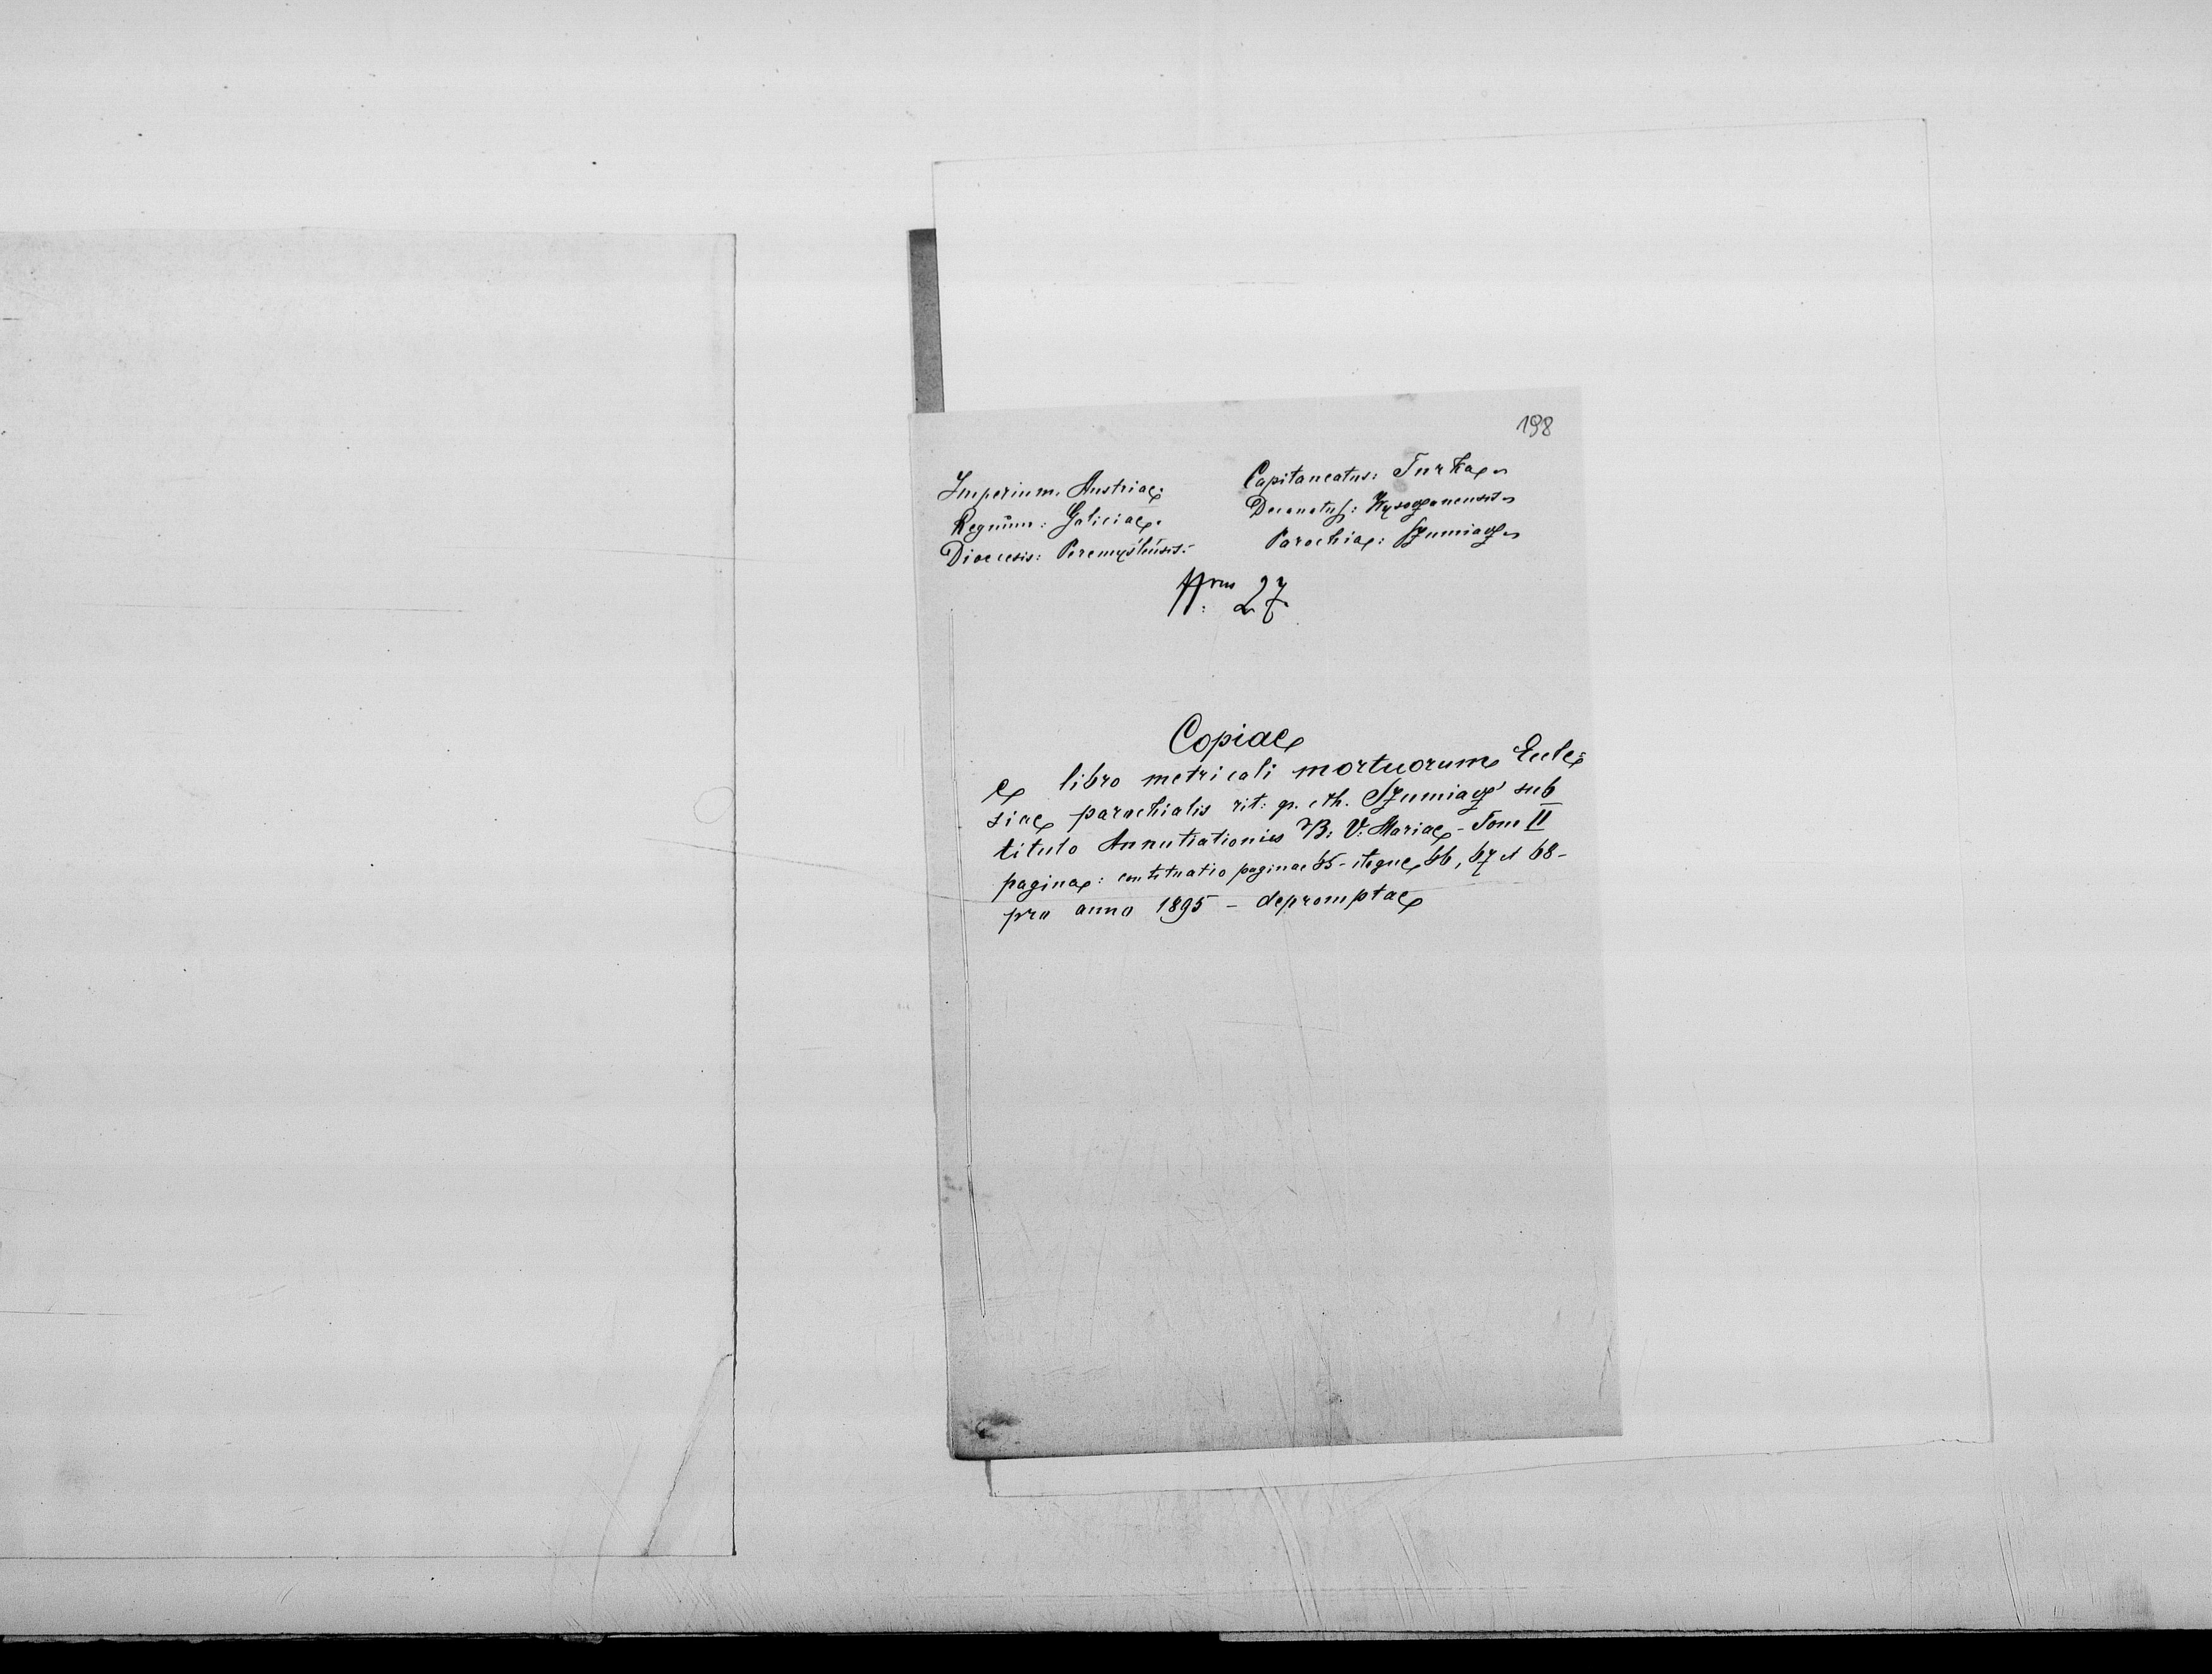 198
Imperium: Austriae.
Regnum: Galiciae.
Dioecesis: Peremysliensis.
Capitaneatus: Turka
Decanatus: Wysoczanensis
Parochia: Szumiacz
Nrus 27
Copiae
e libro metricali mortuorum Eccle=
siae parochialis rit: gr. cth. Szumiacz sub
titulo Annutiationis B: V: Mariae - Tom II
pagina: contituatio paginae 65 - itegue 66, 67 et 68 -
pro anno 1895 - depromptae